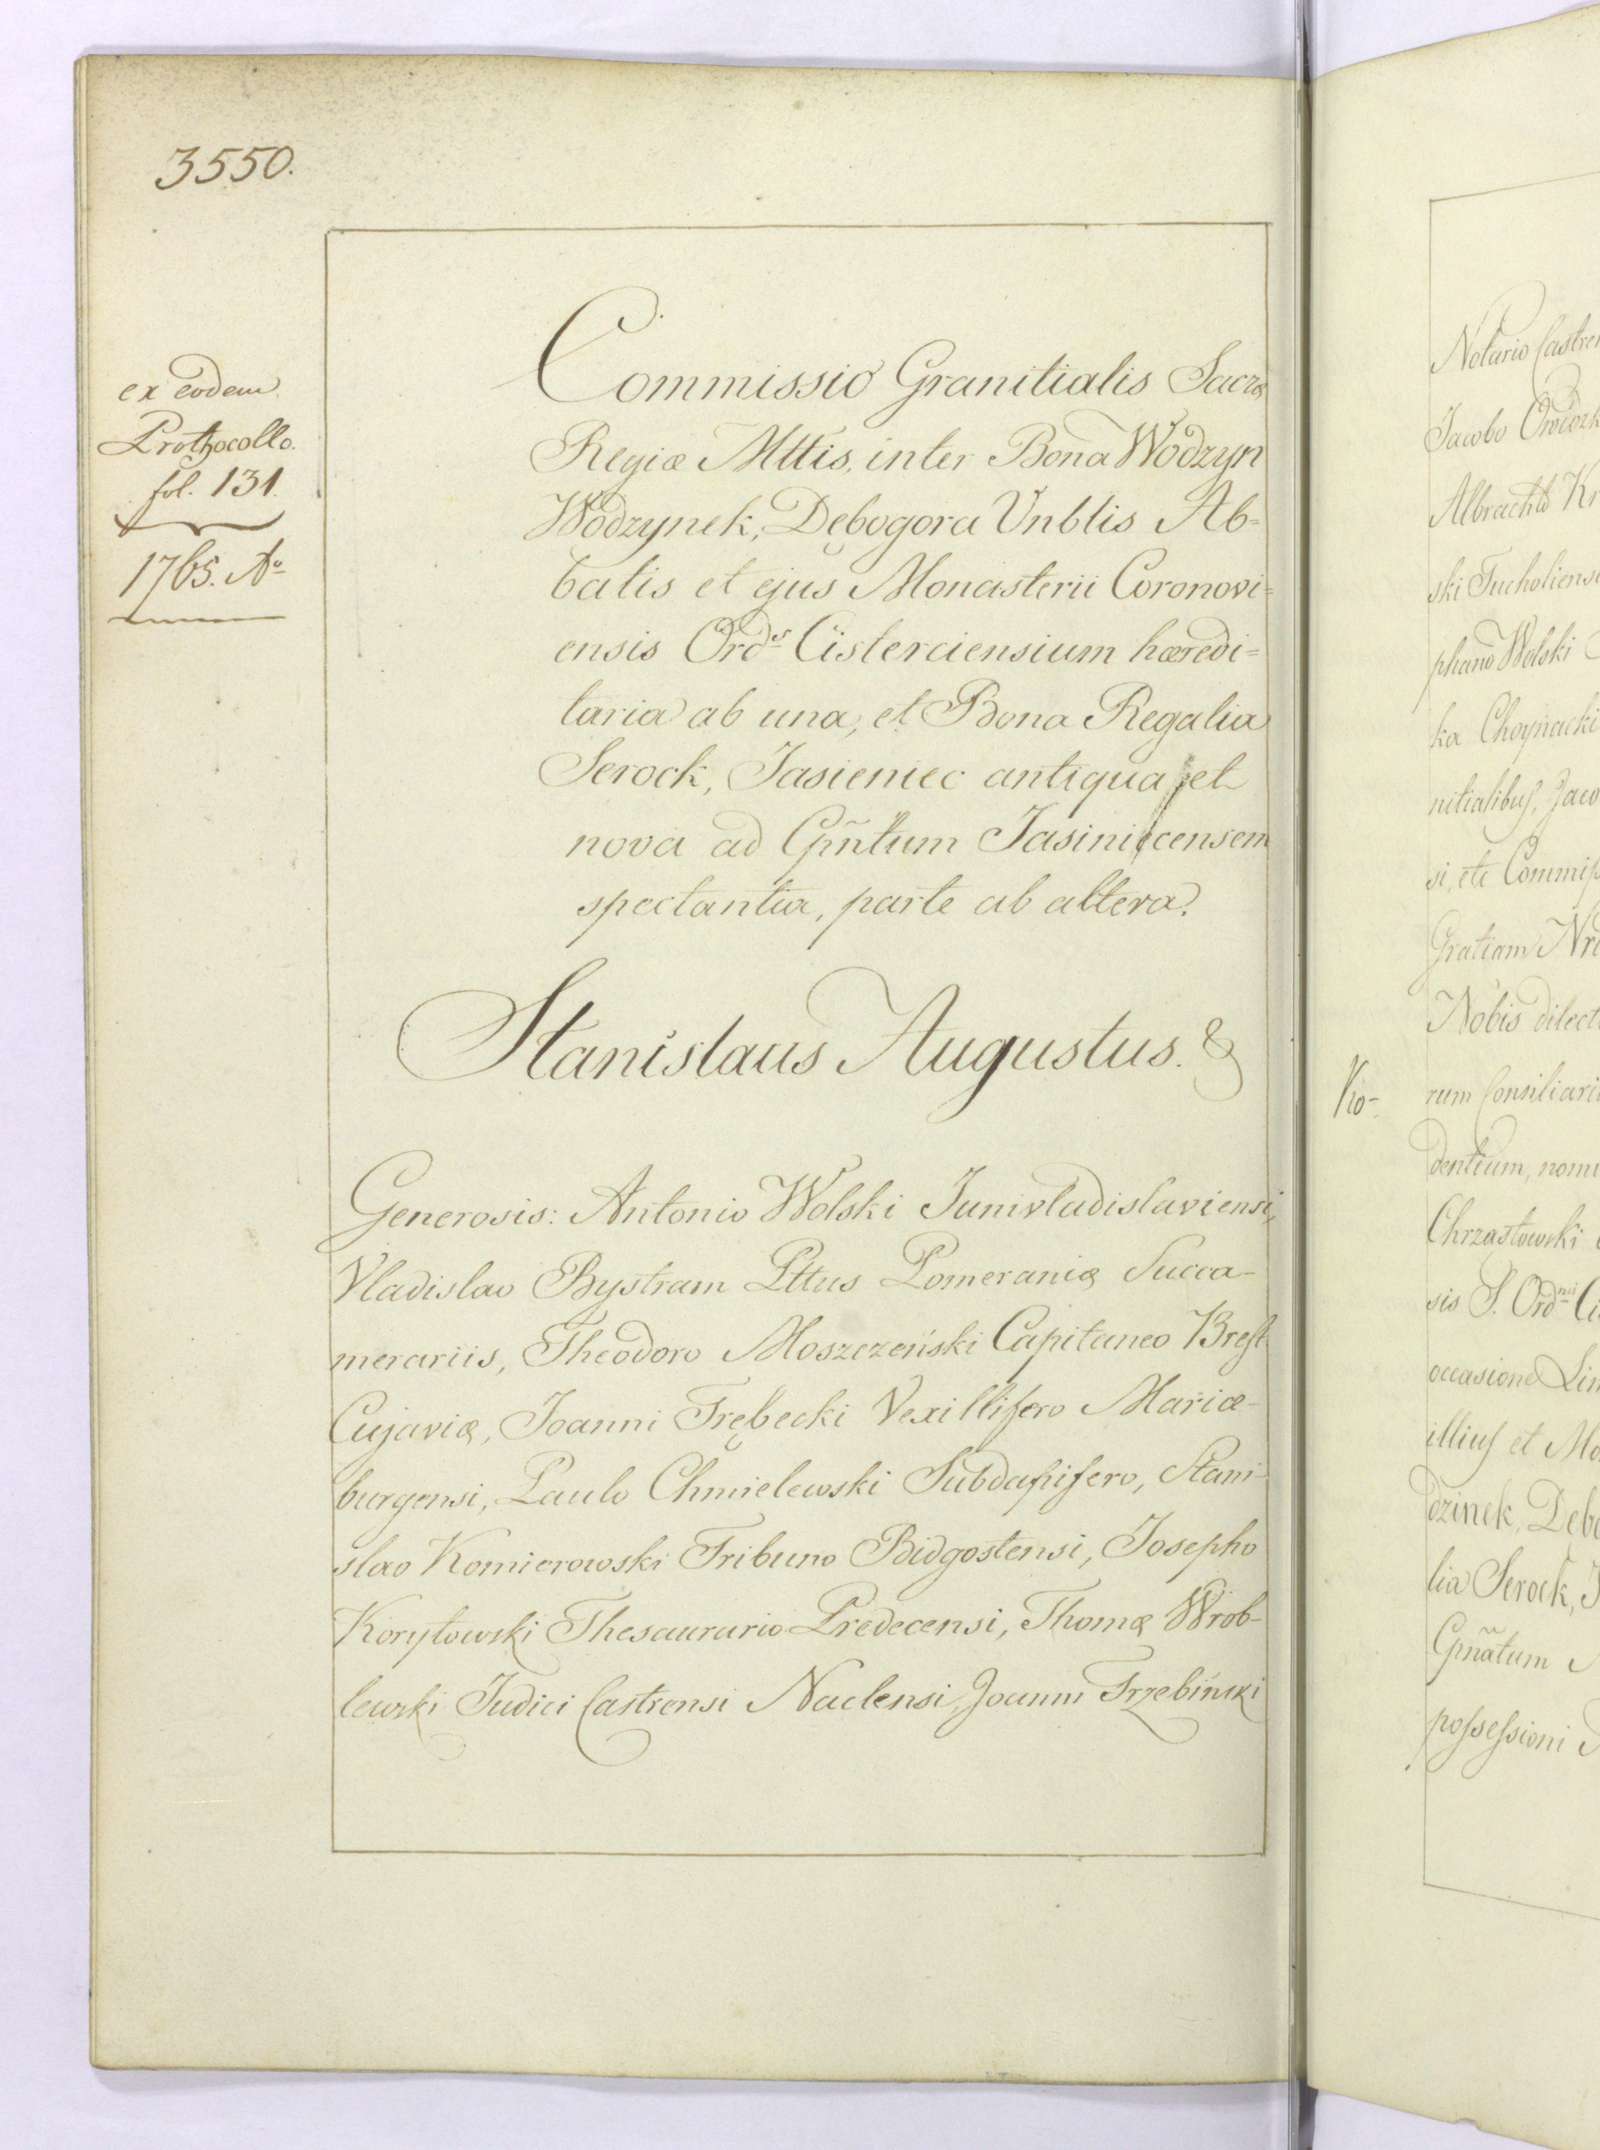 3550.
ex eodem
Prothocollo.
fol. 131.
1765. Aº
Commissio Granitialis Sacræ
Regiæ Mttis, inter Bona Wodzyn
Wodzynek, Dębogora Vnblis Ab=
batis et ejus Monasterii Coronovi=
ensis Ordˢ Cisterciensium hæredi=
taria ab una, et Bona Regalia
Serock, Jasieniec antiqua et
nova ad Gp̃ntum Jasiniecensem
spectantia, parte ab altera.
Stanislaus Augustus. &
Generosis: Antonio Wolski Junivladislaviensi,
Vladislao Bystram Pttus Pomeraniæ Succa-
merariis, Theodoro Moszczeński Capitaneo Brest
Cujaviæ, Joanni Trębecki Vexillifero Mariæ-
burgensi, Paulo Chmielewski Subdapifero, Stani-
slao Komierowski Tribuno Bidgostensi, Josepho
Korytowski Thesaurario Predecensi, Thomæ Wrob-
lewski Judici Castrensi Naclensi, Joanni Trzebiński
Notario Castren
Jacobo
Albrachto Kr
ski Tucholiens
phano Wolski
ka Choynacki
nitialibus, Jaco
si, etc Commiss
Gratiam Nr
Nobis dilect
Ko-
rum Consiliari
dentium, nomi
Chrzastowski
sis S. Ordⁿⁱˢ Ci
occasione Lim
illius et Mo
dzinek, Debo
lia Serock, J
Gp̃natum
possessioni